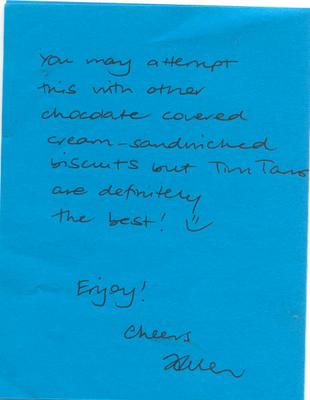 You may attempt
this with other
chocolate covered
cream-sandwiched
biscuits but Tim Tams
are definitely
the best!
Enjoy!
Cheers